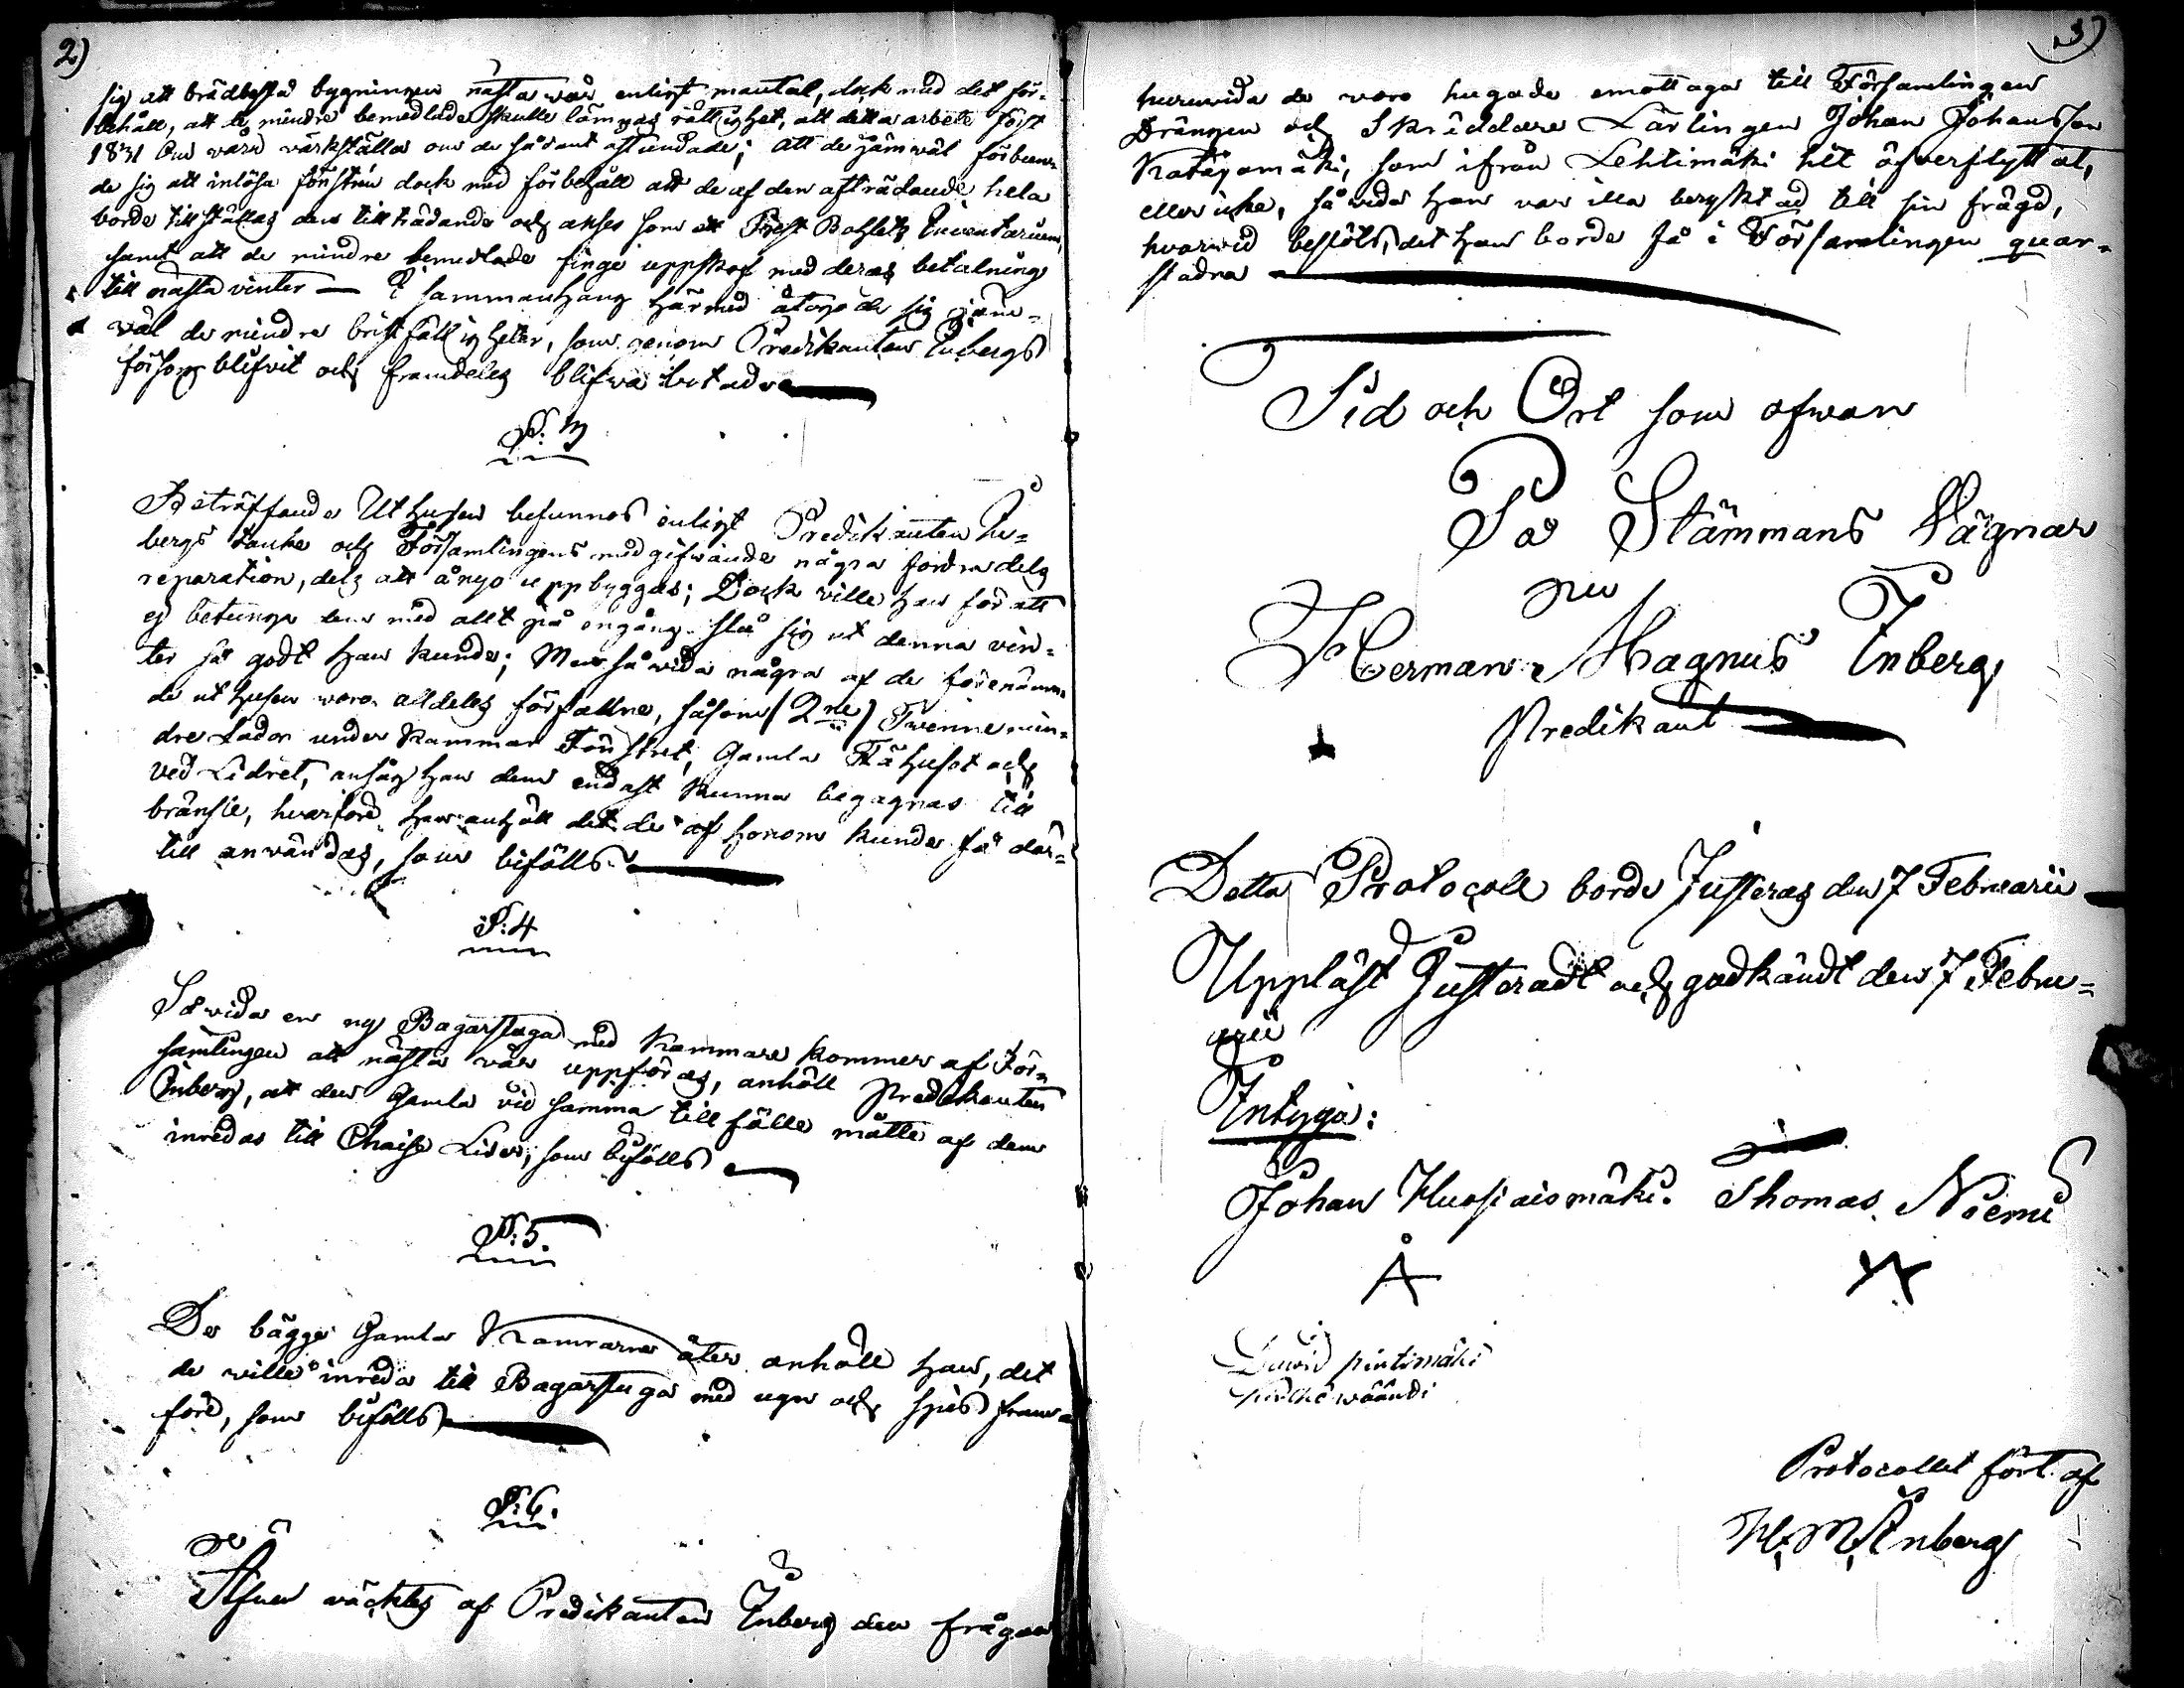 2)
sig att brädbeslå bygningen nästa vår enligt mantal, dock med det för-
behåll, att de mindre bemedlade skulle lämnas rättighet, att detta arbete först
1831 Om våren värkställa om de sådant åstundade; att de jämwäl förbun-
de sig att inlösa fönstren dock med förbehåll att de af den afträdande hela
borde tillställas den tillträdande och anses som ett Prest Bohlets Inventarium,
samt att de mindre bemedlade finge uppskof med deras betalning
till nästa vinter — I sammanhang härmed åtogo de sig jäm-
väl de mindre bristfälligheter, som genom Predikanten Inbergs
försorg blifvit och framdeles blifwa botade
§. 3
Beträffande Uthusen befunnos enligt Predikanten In-
bergs tanke och Församlingens medgifwande några fordra dels
reparation, dels att å nyo uppbyggas; Dock ville han för att
ej betunga dem med allt på engång slå sig ut denna vin-
ter så godt han kunde; Men så vida några af de förenämn-
de uthusen woro alldeles förfallne, såsom (2ne) Twenne min-
dre Lador under Kammar Fönstret, Gamla Fähuset och
ved Lidret, ansåg han dem endast kunna begagnas till
bränsle, hvarföre han anhöll det de af honom kunde få där-
till användas, som bifölls.
§: 4
Så vida en ny Bagarstuga med Kammare kommer af För-
samlingen att nästa vår uppföras, anhöll Predikanten
Inberg, att den Gamla vid samma tillfälle måtte af dem
inredas till Chaise Lider, som bifölls
§: 5.
De bägge Gamla Kamrarne åter anhöll han, det
de wille inreda till Bagarstuga med ugn och spis fram-
före, som bifölls
§: 6.
Äfven väcktes af Predikanten Inberg den frågan
3)
huruvida de woro hugade emottaga till Församlingen
Drängen och Skräddare Lärlingen Johan Johansson
Katajamäki, som ifrån Lehtimäki hit öfverflyttat,
eller icke, så vida han var illa beryktad till sin frägd,
hvarvid beslöts, det han borde få i Församlingen quar-
stadna
Tid och Ort som ofwan
På Stämmans Vägnar
Herman Magnus Inberg
Predikant
Detta Protocoll borde Justeras den 7 Februarii
Uppläst Justeradt och godkändt den 7 Febru-
arii
Intyga:
Johan Kuosiaismäki. Thomas Niemi
Dawid pintimäki
Protocollet fört af
H. M. Inberg